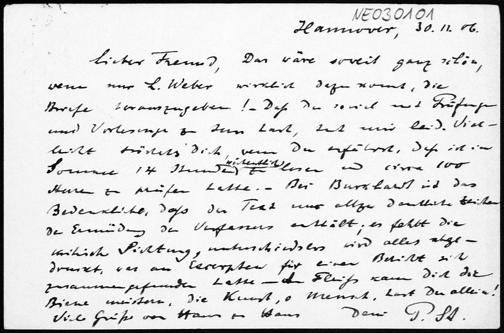 NE030101
Hannover, 30.11.06.
Lieber Freund, Das wäre soweit ganz schön,
wenn nur H. Weber wirklich dazu kommt, die
Briefe herauszugeben! – Daß Du so viel mit Prüfungen
und Vorlesungen zu tun hast, tut mir leid. Viel-
leicht tröstet's Dich, wenn Du erfährst, daß ich im
Sommer 14 Stunden wöchentlich zu lesen und circa 100
Herren zu prüfen hatte. – Bei Burkhardt ist das
Bedenkliche, daß der Text nur allzu deutliche Zeichen
der Ermüdung des Verfassers enthält; es fehlt die
kritische Sichtung, unterschiedslos wird alles abge-
druckt, was an Excerpten für einen Bericht sich
zusammengefunden hatte – Im Fleiß kann Dich die
Biene meistern, die Kunst, o Mensch, hast Du allein!
Viele Grüße von Haus zu Haus Dein P. St.